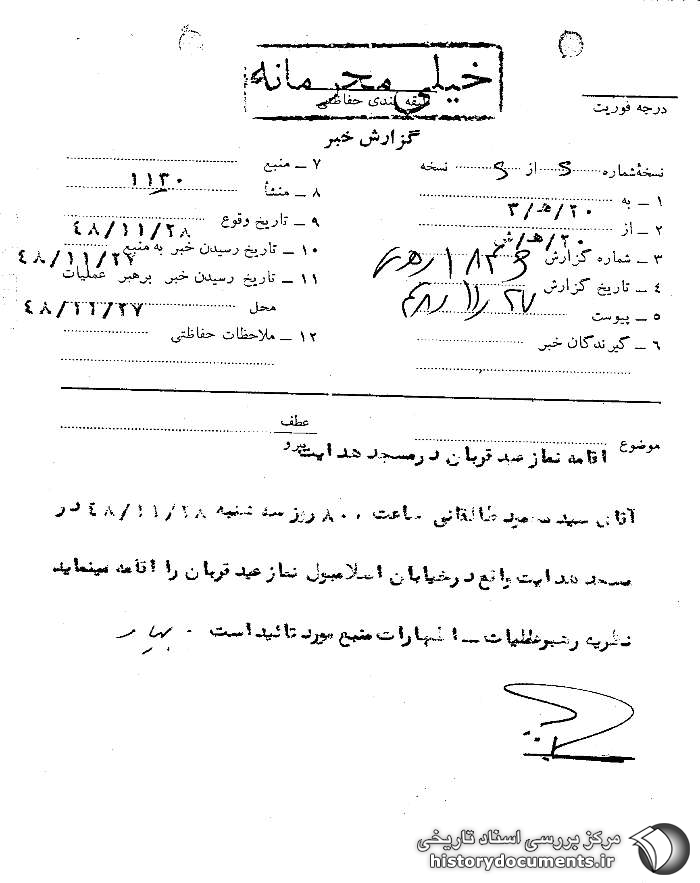 خیلی محرمانه
طبقه بندی حفاظتی
درجه فوریت
گزارش خبر
نسخهٔ شماره ۵ از ۵ نسخه
۱ ــ به ۲۰/هـ/۳
۲ ــ از ۲۰/هـ/
۳ ــ شماره گزارش
۴ ــ تاریخ گزارش ۲۷/۱۱/۴۸
۵ ــ پیوست
۶ ــ گیرندگان خبر
۷ ــ منبع ۱۱۳۰
۸ ــ منشأ
۹ ــ تاریخ وقوع ۴۸/۱۱/۲۸
۱۰ ــ تاریخ رسیدن خبر به منبع ۴۸/۱۱/۲۷
۱۱ ــ تاریخ رسیدن خبر برهبر عملیات
محل ۴۸/۱۱/۲۷
۱۲ ــ ملاحظات حفاظتی
موضوع
عطف
پیرو
اقامه نماز عید قربان در مسجد هدایت
آقای سید محمود طالقانی ساعت ۸۰۰ روز سه شنبه ۴۸/۱۱/۲۸ در
مسجد هدایت واقع در خیابان اسلامبول نماز عید قربان را اقامه مینماید
نظریه رهبر عملیات ــ اظهارات منبع مورد تائید است ۰
مرکز بررسی اسناد تاریخی
historydocuments.ir